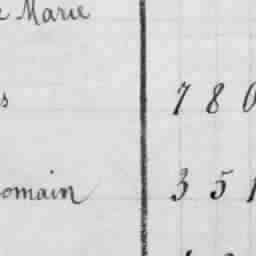 Marie
s 7 8 0
omain 3 5 1